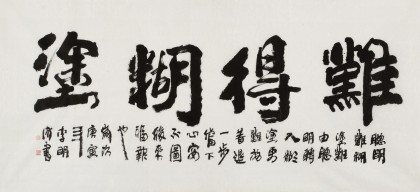 難得糊塗
聰明
難糊
塗難
由聰
明轉
入糊
塗更
難放
着退
一步
當下
心安
不圖
後來
福報
也
歲次
庚寅
李明
書